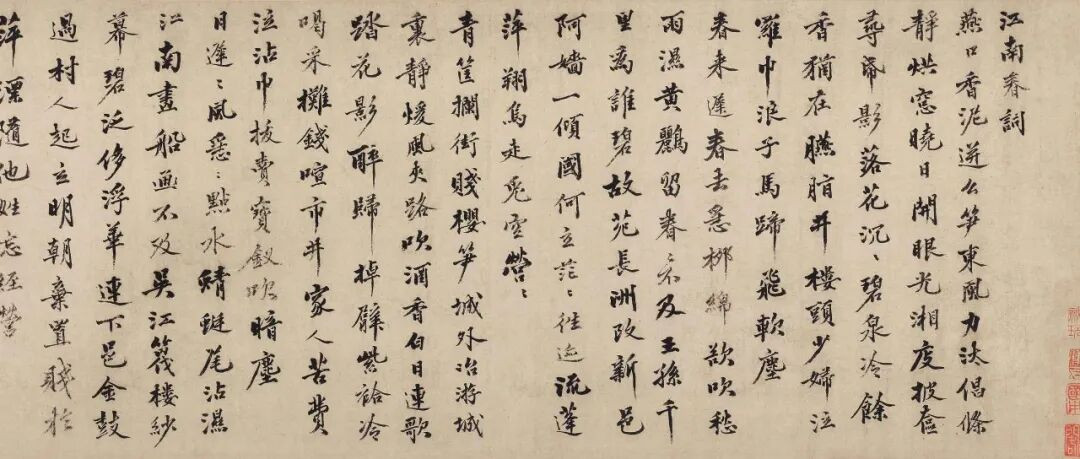 江南春詞
燕口香泥迸幺笋東風力汰倡條
靜烘窓曉日開眼光湘庋披奩
尋帋影落花沉〻碧泉冷餘
香猶在臙脂井樓頭少婦泣
羅巾浪子馬蹄飛軟塵
春来遲春去急柳綿欲吹愁
雨濕黄鸝留春不及王孫千
里為誰碧故苑長洲改新邑
阿嬙一傾國何立茫〻往迹流蓬
萍翔烏走兎空營〻
青筐攔街賤櫻笋城外冶游城
裏靜煖風夾路吹酒香白日連歌
踏花影醉歸掉臂紫袷冷
喝采攤錢喧市井家人苦費
泣沾巾拔賣寶釵吹暗塵
日遲〻風急〻點水蜻蜓尾沾濕
江南畫船画不及吳江篾樓紗
幕碧泛侈浮華連下邑金鼓
過村人起立明朝棄置賤於
萍漂隨他姓忘經營